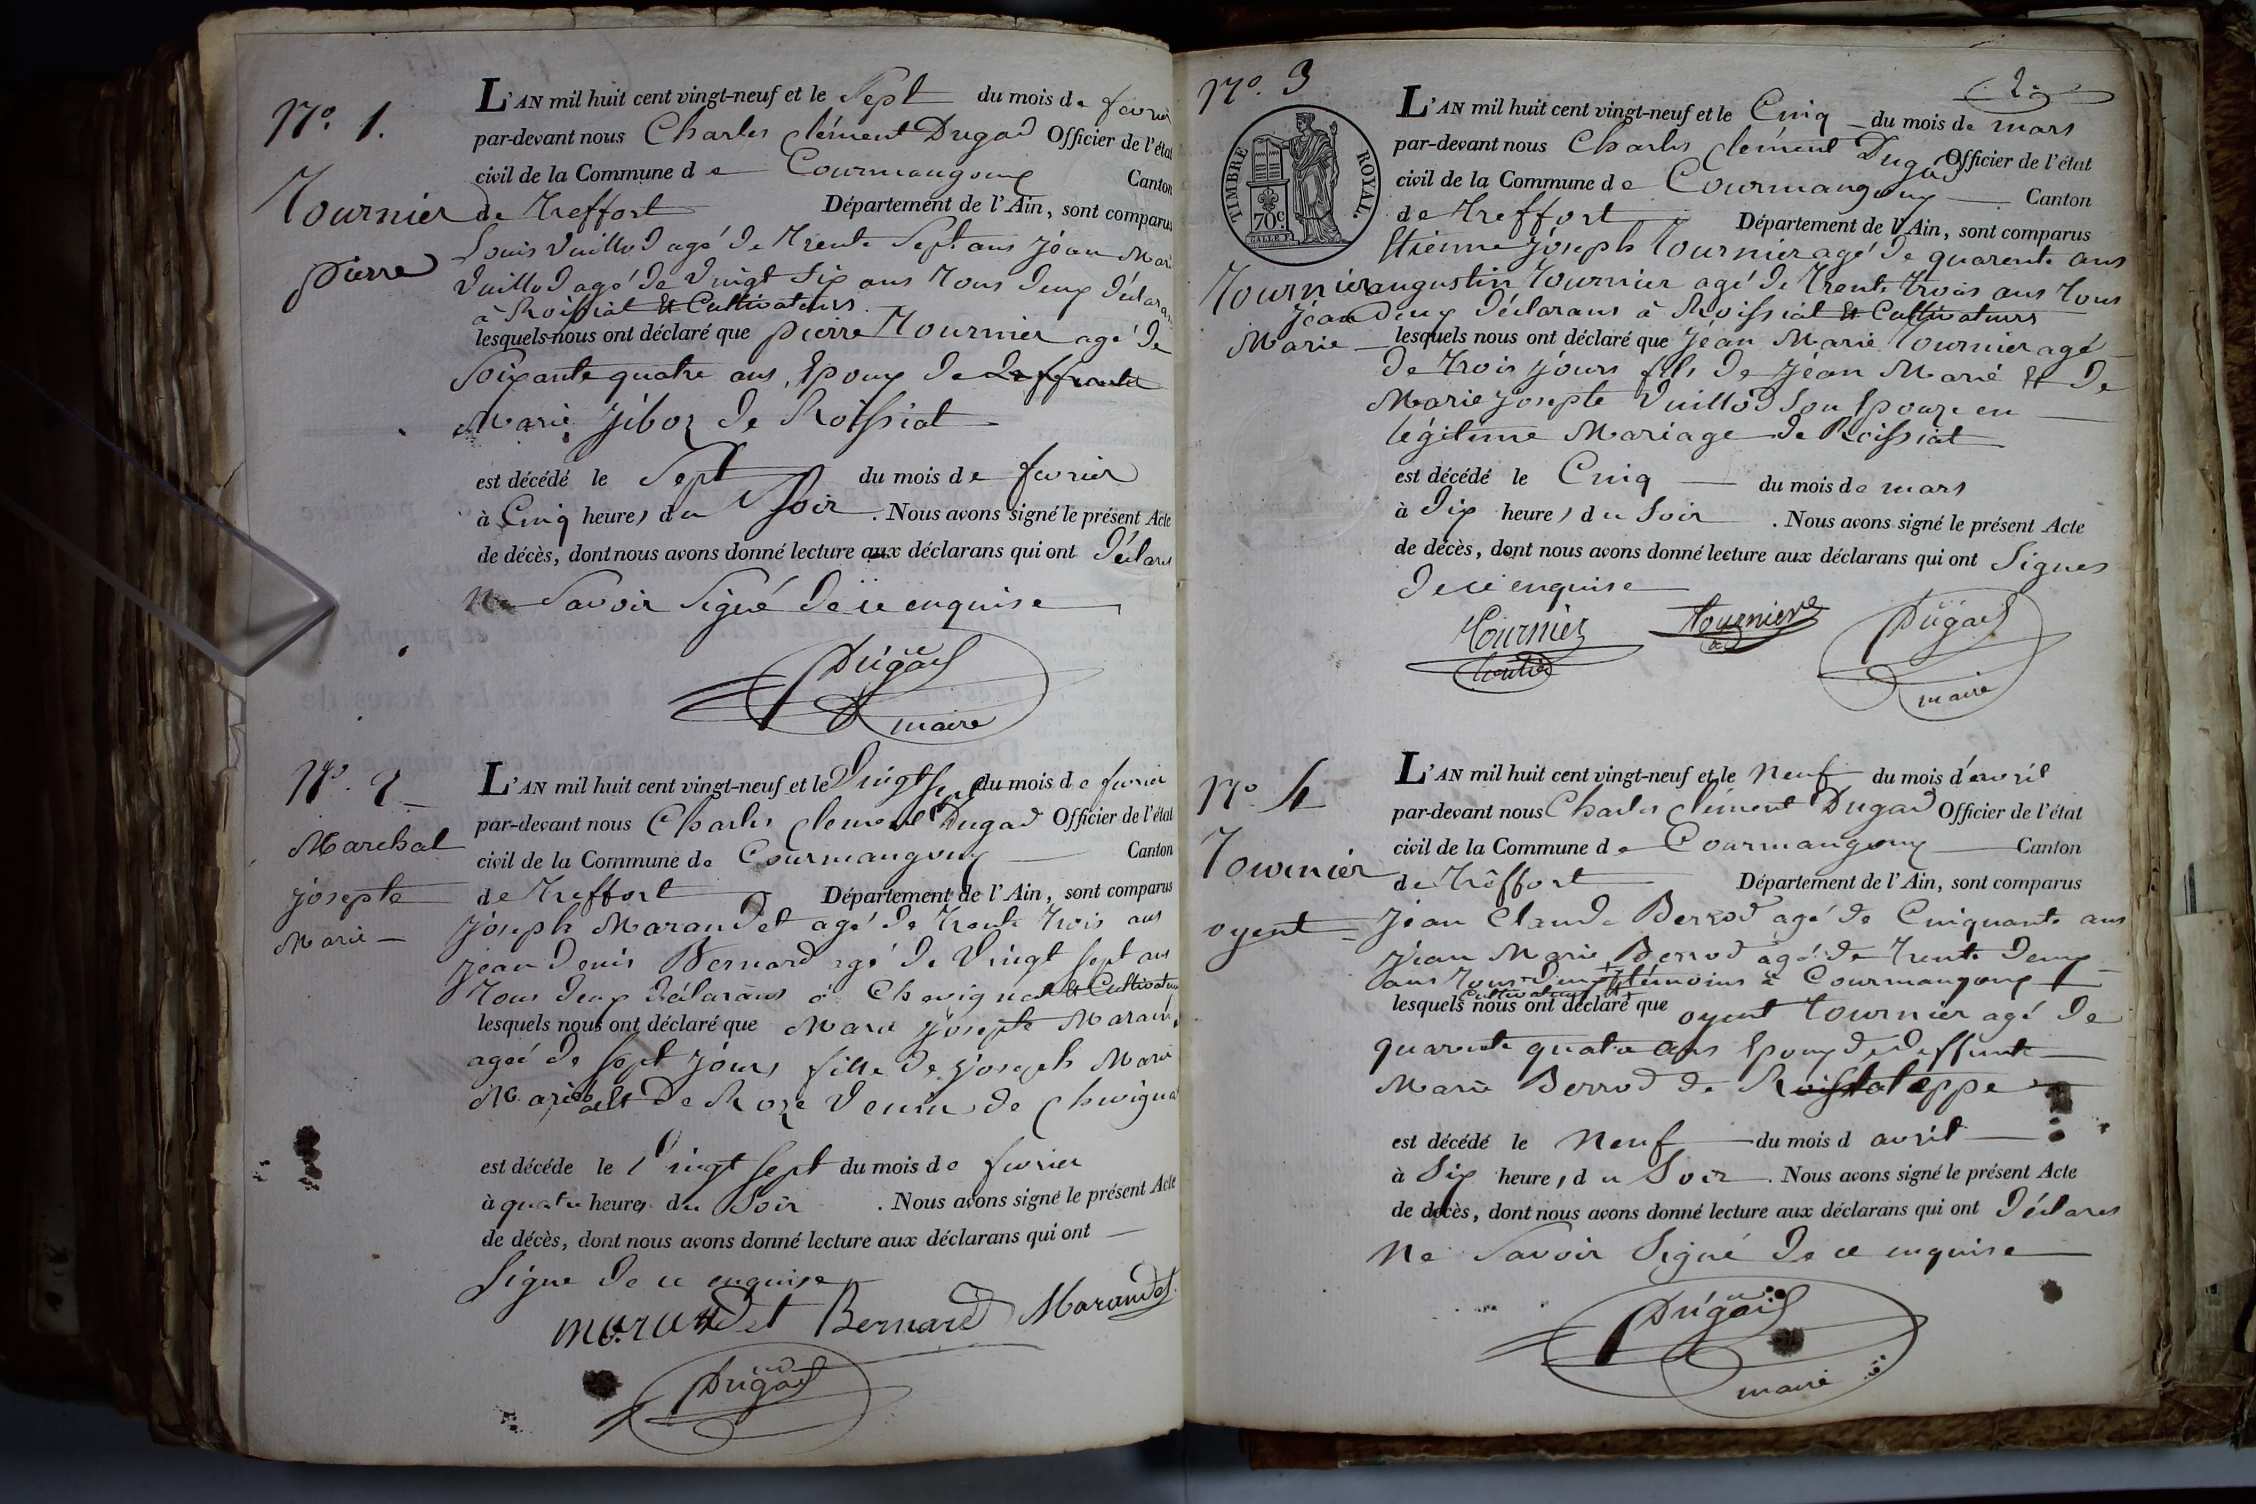 N°. 1.
Tournier
pierre
L'AN mil huit cent vingt-neuf et le Sept du mois de fevrier
par-devant nous Charles Clément Dugad Officier de l'état
civil de la Commune de Courmangoux Canton
de Treffort Département de l'Ain, sont comparus
Louis Vuillod agé de trente Sept ans Jean Mari
Vuillod agé de Vingt Six ans tous deux déclarans
à Roissiat et Cultivateurs
lesquels nous ont déclaré que pierre Tournier agé de
Soixante quatre ans, Epoux de deffunte
Marie Jiboz de Roissiat
est décédé le Sept du mois de fevrier
à Cinq heures du Soir . Nous avons signé le présent Acte
de décès, dont nous avons donné lecture aux déclarans qui ont déclarés
Ne Savoir Signé de ce enquise
Dugad
maire
N°. 2
Marchal
josepte
Marie
L'AN mil huit cent vingt-neuf et le Vingt sept du mois de fevrier
par-devant nous Charles Clement Dugad Officier de l'état
civil de la Commune de Courmangoux Canton
de Treffort Département de l'Ain, sont comparus
Joseph Marandet agé de trente trois ans
Jean Denis Bernard agé de Vingt sept ans
tous deux déclarans à Chevignat et Cultivateurs
lesquels nous ont déclaré que Marie Josepte
ageé de sept jours fille de Joseph Marie
de Roze de
est décédé le Vingt sept du mois de fevrier
à quatre heures du Soir . Nous avons signé le présent Acte
de décès, dont nous avons donné lecture aux déclarans qui ont
Signe de ce enquise
marandet Bernard Marandet
Dugad
N°. 3
2
TIMBRE ROYAL.
70c
Tournier
Jean
Marie
L'AN mil huit cent vingt-neuf et le Cinq du mois de mars
par-devant nous Charles Clément Dugad Officier de l'état
civil de la Commune de Courmangoux Canton
de Treffort Département de l'Ain, sont comparus
Etienne Joseph Tournier agé de quarente ans
augustin Tournier agé de trente trois ans tous
deux déclarans à Roissiat et Cultivateurs
lesquels nous ont déclaré que Jean Marie Tournier agé
de trois jours fils de Jean Marie et de
Marie Josepte Vuillod Son Epouze en
légitime Mariage de Roissiat
est décédé le Cinq du mois de mars
à Dix heures du Soir . Nous avons signé le présent Acte
de décès, dont nous avons donné lecture aux déclarans qui ont Signes
de ce enquise
Tournier Tournier Dugad
maire
N°. 4
Tournier
oyent
L'AN mil huit cent vingt-neuf et le Neuf du mois d'avril
par-devant nous Charles Clément Dugad Officier de l'état
civil de la Commune de Courmangoux Canton
de Tréffort Département de l'Ain, sont comparus
Jean Claude Berrod agé de Cinquante ans
Jean Marie Berrod agé de trente deux
ans tous deux témoins à Courmangoux
Cultivateurs
lesquels nous ont déclaré que oyent Tournier agé de
quarente quatre ans Epoux de deffunte
Marie Berrod de
est décédé le Neuf du mois d avril
à Six heures du Soir . Nous avons signé le présent Acte
de décès, dont nous avons donné lecture aux déclarans qui ont déclares
Ne Savoir Signé de ce enquise
Dugad
maire